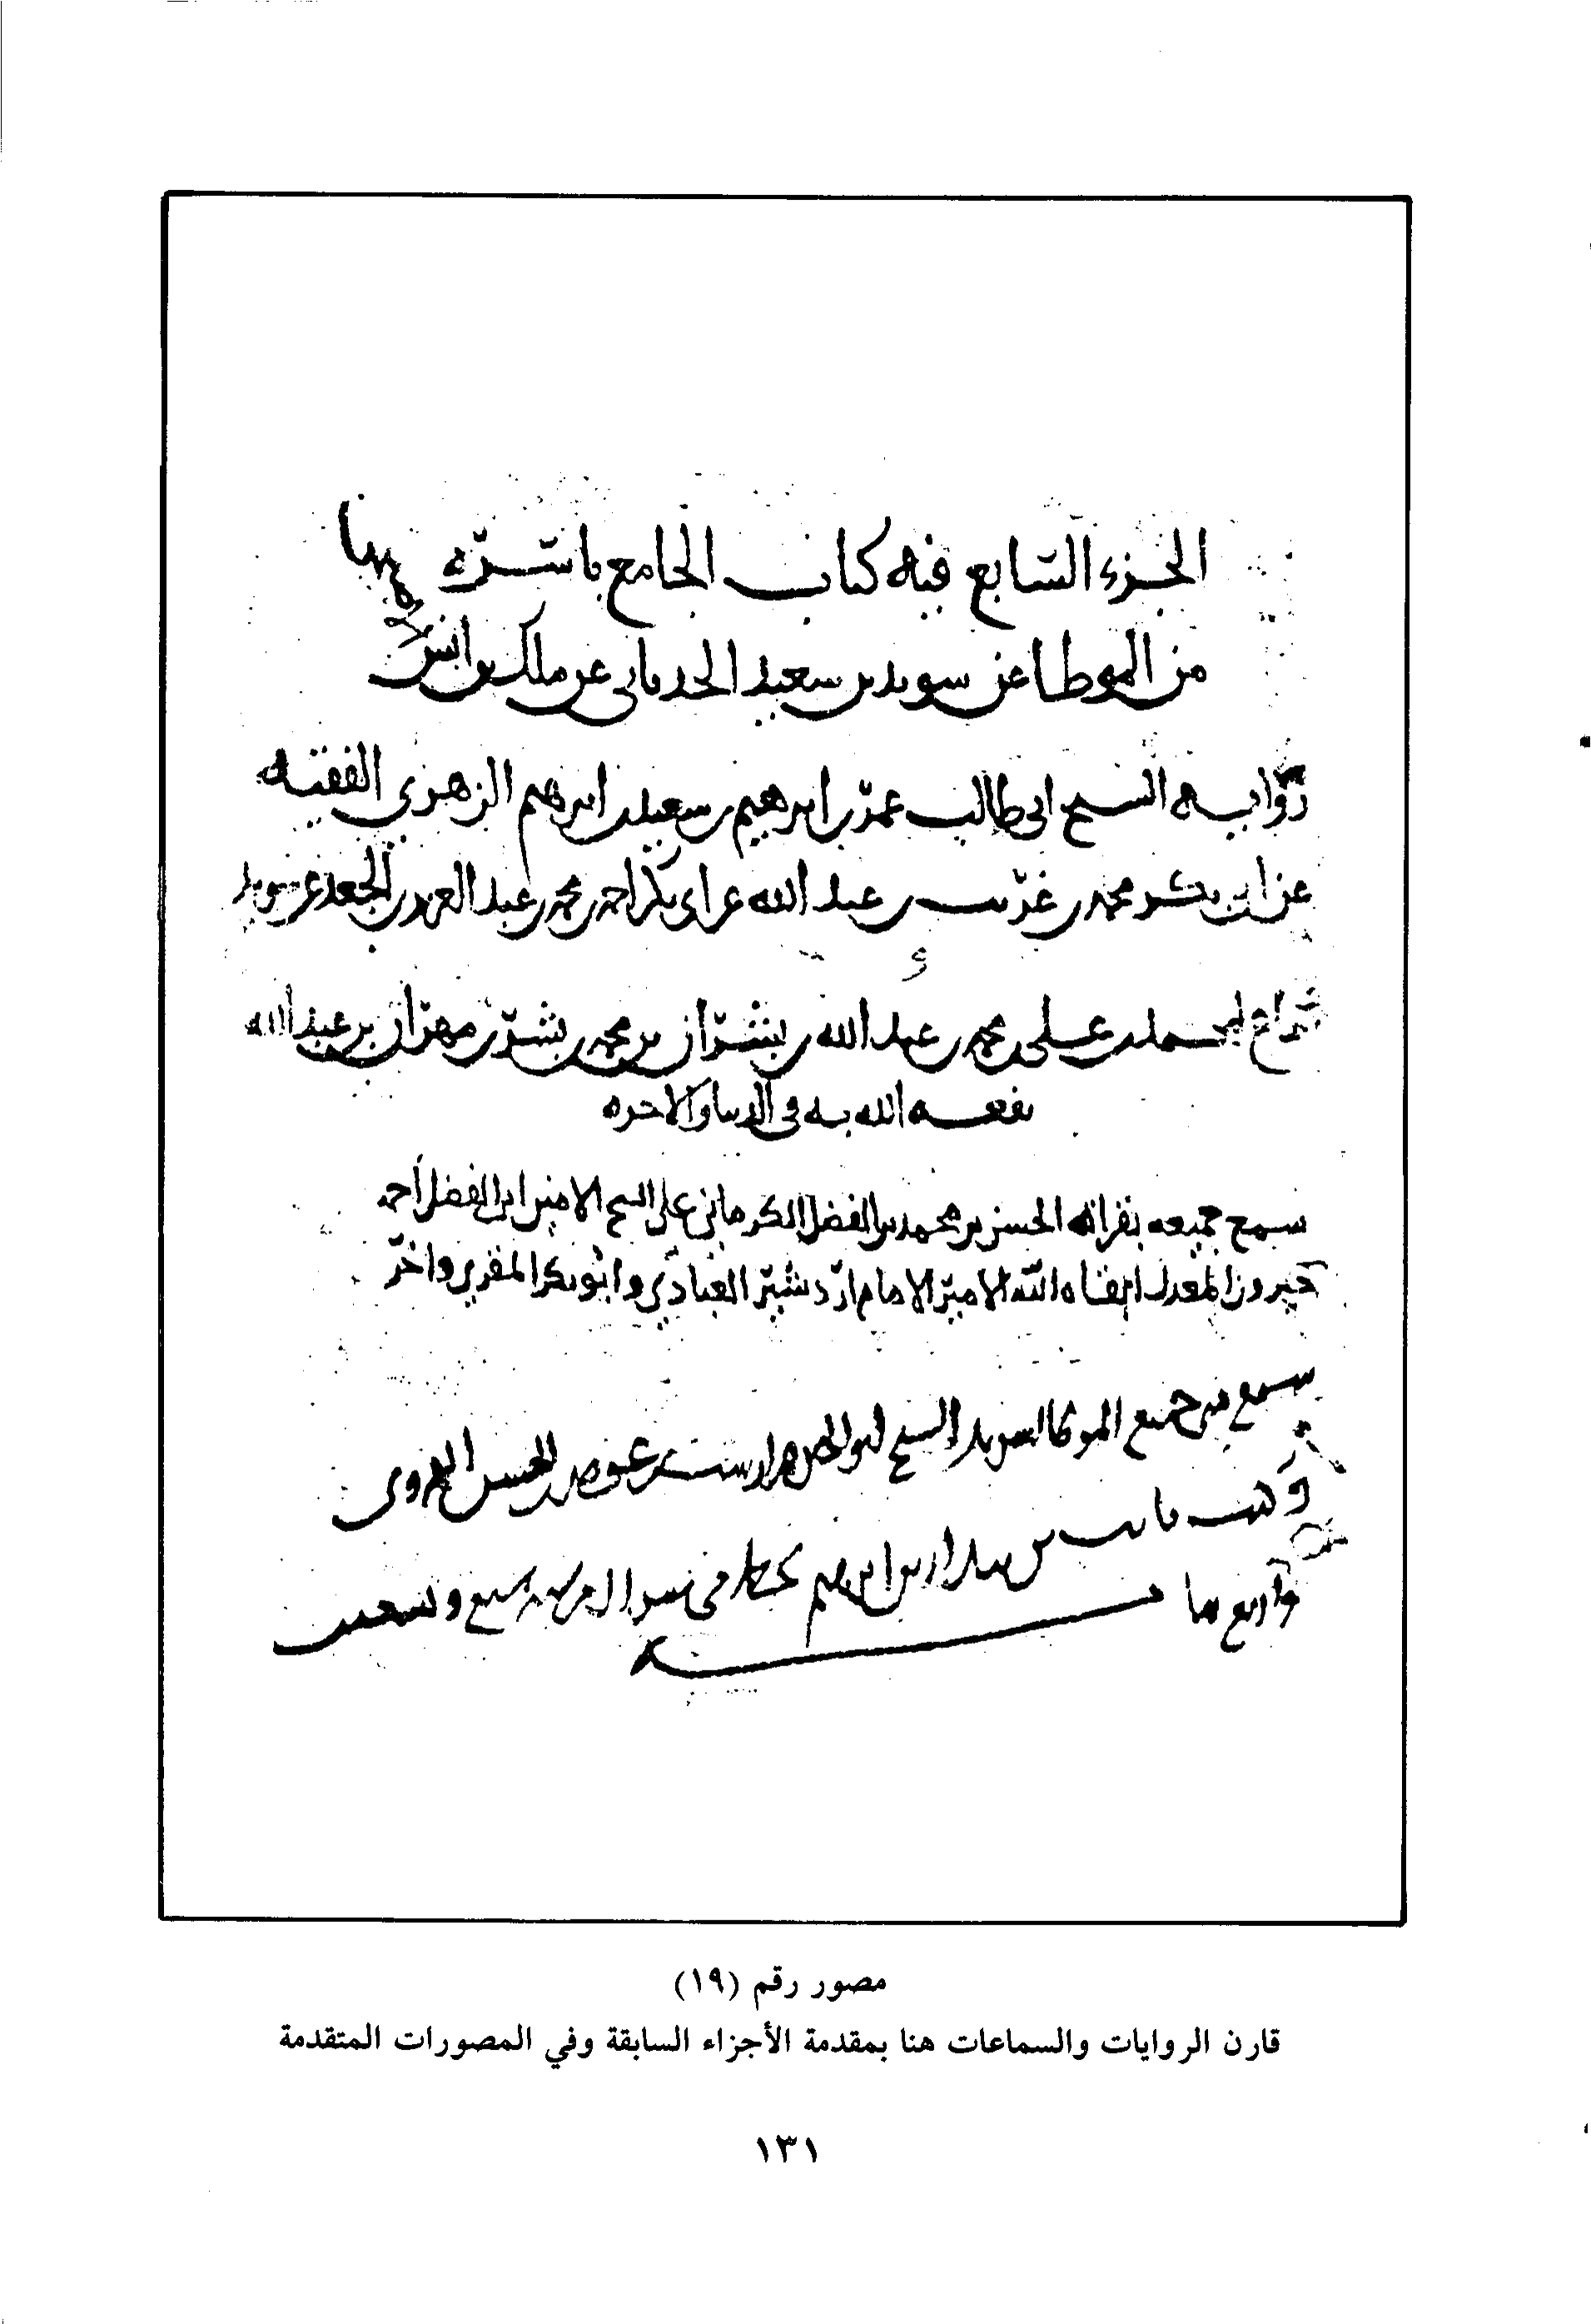 الجزء السابع فيه كتاب الجامع باسره
من الموطا عن سويد بن سعيد الحدثاني عن ملك بن انس
رواية الشيخ ابي طالب عمر بن ابرهيم بن سعيد بن ابرهيم الزهري الفقيه
عن ابي بكر محمد بن غريب بن عبد الله عن ابي بكر احمد بن محمد بن عبد العزيز بن الجعد عن سويد
سماع لمحمد بن علي بن محمد بن عبد الله بن بشران بن محمد بن بشر بن مهران بن عبد الله
نفعه الله به في الدنيا والاخره
سمع جميعه بقراة الحسن بن محمد بن الفضل الكرماني على الشيخ الامين ابي الفضل أحمد
خيرون المعدل ابقاه الله الامير الامام اردشير العبادي وابو بكر المقري واخر
سمع جميع الموطا الشيخ ابو الحسن بن الحسن
بن بندار بن ابرهيم بخطه في شوال من سنه سبع وتسعين
واربع مايه
مصور رقم (١٩)
قارن الروايات والسماعات هنا بمقدمة الأجزاء السابقة وفي المصورات المتقدمة
١٣١